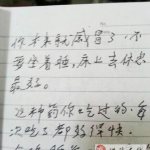 你本来就感冒了,不
要坐着睡,床上去休息
最好。
这种药你吃过的,每
次吃了都好得快.